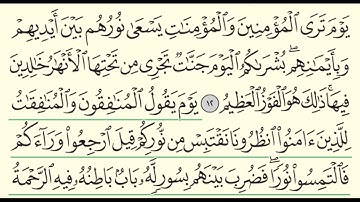 يَوْمَ تَرَى ٱلْمُؤْمِنِينَ وَٱلْمُؤْمِنَٰتِ يَسْعَىٰ نُورُهُم بَيْنَ أَيْدِيهِمْ
وَبِأَيْمَٰنِهِمۖ بُشْرَىٰكُمُ ٱلْيَوْمَ جَنَّٰتٌ تَجْرِى مِن تَحْتِهَا ٱلْأَنْهَٰرُ خَٰلِدِينَ
فِيهَاۚ ذَٰلِكَ هُوَ ٱلْفَوْزُ ٱلْعَظِيمُ ١٢ يَوْمَ يَقُولُ ٱلْمُنَٰفِقُونَ وَٱلْمُنَٰفِقَٰتُ
لِلَّذِينَ ءَامَنُوا۟ ٱنظُرُونَا نَقْتَبِسْ مِن نُّورِكُمْ قِيلَ ٱرْجِعُوا۟ وَرَآءَكُمْ
فَٱلْتَمِسُوا۟ نُورًاۖ فَضُرِبَ بَيْنَهُم بِسُورٍ لَّهُۥ بَابٌۢ بَاطِنُهُۥ فِيهِ ٱلرَّحْمَةُ